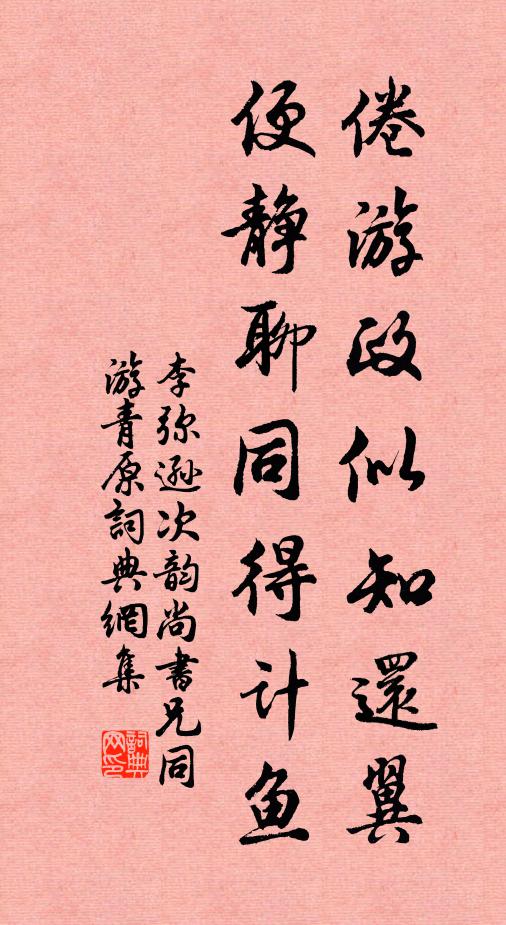 倦游政似知還翼
便静聊同得计鱼
李弥遜次韵尚書兄同
游青原詞典網集
詞典网印